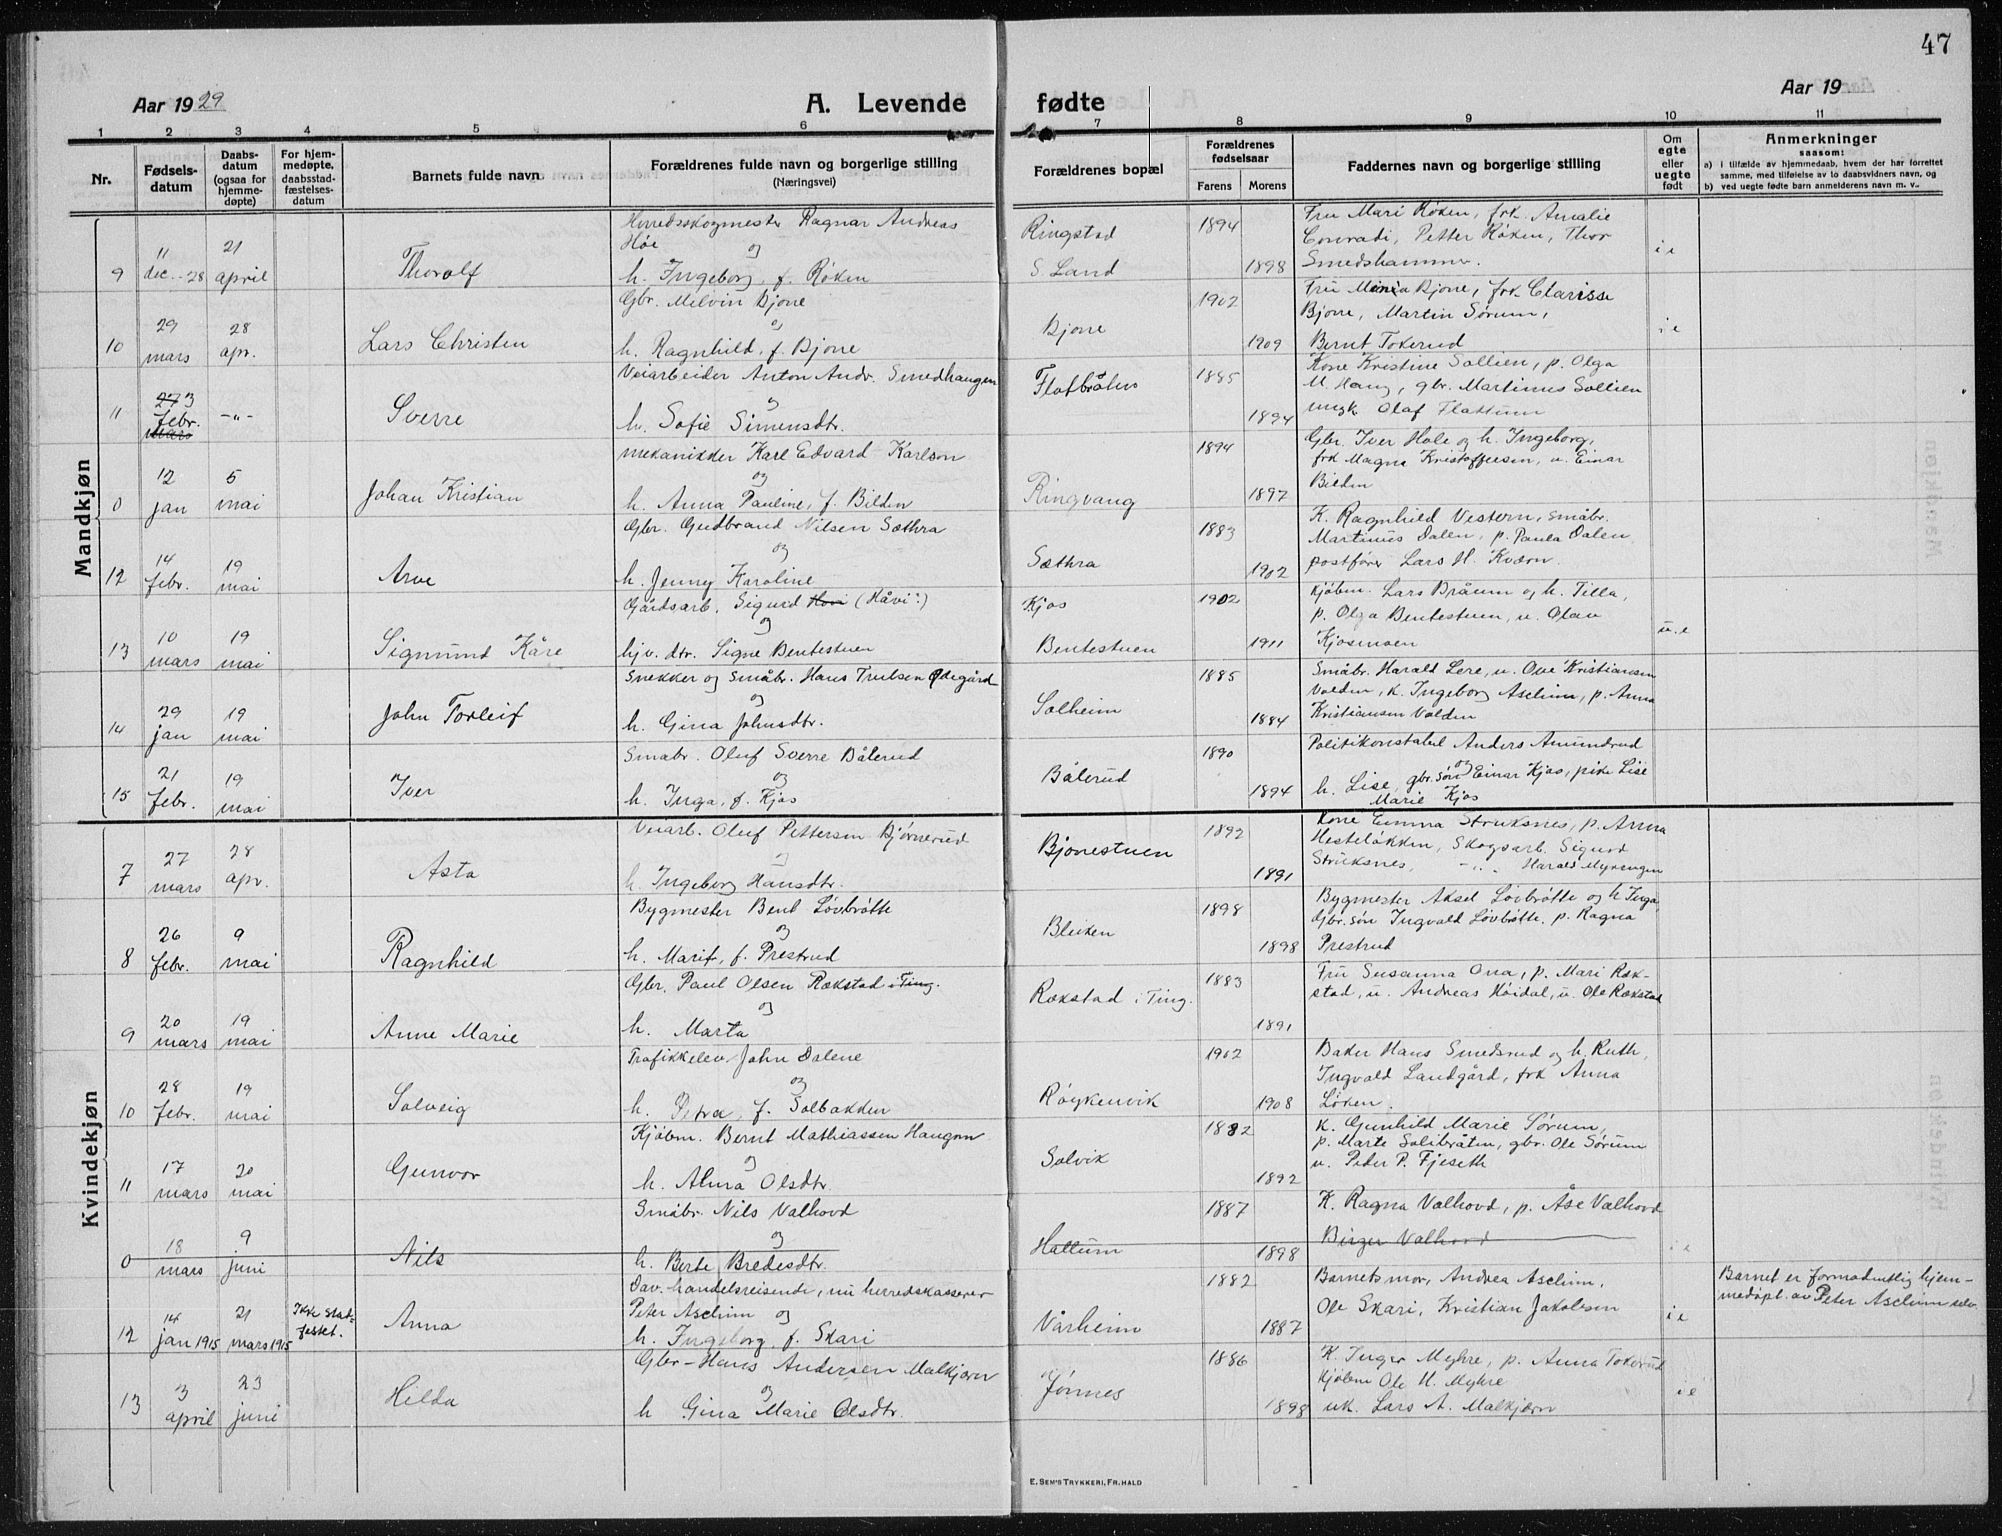 47
Aar 1929
A. Levende fødte
Aar 19
1 2 3 4 5 6 7 8 9 10 11
Nr.
Fødsels-
datum
Daabs-
datum
(ogsaa for
hjemme-
døpte)
For hjem-
medøpte,
daabsstad-
fæstelses-
datum
Barnets fulde navn
Forældrenes fulde navn og borgerlige stilling
(Næringsvei)
Forældrenes bopæl
Forældrenes
fødselsaar
Farens Morens
Faddernes navn og borgerlige stilling
Om
egte
eller
uegte
født
Anmerkninger
saasom:
a) i tilfælde av hjemmedaab, hvem der har forrettet
samme, med tilføielse av to daabsvidners navn, og
b) ved uegte fødte barn anmelderens navn m. v.
Mandkjøn
Herredsskogmester Ragnar Andreas
Høe og
9 11 dec. -28 21 april Thorolf h. Ingeborg, f. Røken
Ringstad
S. Land
1894 1898
Fru Mari Røken, frk. Amalie
Conradi, Petter Røken, Thor
Smedshammer.
i e
Gbr. Melvin Bjone
og
10 29 mars 28 apr. Lars Christen h. Ragnhild, f. Bjone
Bjone
1902 1909
Fru Minia Bjone, frk Clarisse
Bjone, Martin Sørum,
Bernt Tokerud
i e
Veiarbeider Anton Andr. Smedhaugen
og
11 27 3 febr. mars -"- Sverre h. Sofie Simensdtr.
Flatbråten
1885 1894
Kone Kristine Sollien, p. Olga
M. Haug, gbr. Martinus Sollien
ungk. Olaf Flattum
mekanikker Karl Edvard Karlson
og
0 12 jan 5 mai Johan Kristian h. Anna Pauline, f. Bilden
Ringvang
1894 1897
Gbr. Iver Hole og h. Ingeborg,
frk Magna Kristoffersen, u. Einar
Bilden
Gbr. Gudbrand Nilsen Sæthra
og
12 14 febr. 19 mai Arve h. Jenny Karoline
Sæthra
1883 1902
K. Ragnhild Vestern, småbr.
Martinus Dalen, p. Paula Dalen
postfører Lars H. Kværn.
Gårdsarb. Sigurd Hovi (Håvi:)
og
13 10 mars 19 mai Sigmund Kåre hjv. dtr. Signe Bentestuen
Kjos
Bentestuen
1902 1911
Kjøbm. Lars Bråum og h. Tilla,
p. Olga Bentestuen, u. Olau
Kjosmoen
u. e
Snekker og Småbr. Hans Trulsen Ødegård
og
14 29 jan 19 mai John Torleif h. Gina Johnsdtr.
Solheim
1885 1884
Småbr. Harald Lere, u. Ove Kristiansen
Volden, k. Ingeborg Aschim, p. Anna
Kristiansen Volden
Småbr. Oluf Sverre Bålerud
og
15 21 febr. 19 mai Iver h. Inga, f. Kjos
Bålerud
1890 1894
Politikonstabel Anders Amundrud
og
h. Lise, gbr. søn Einar Kjos, pike Lise
Marie Kjos
Kvindekjøn
Veiarb. Oluf Pettersen Bjørnerud
og
7 27 mars 28 apr. Asta h. Ingeborg Hansdtr.
Bjonestuen
1892 1891
Kone Emma Struksnes, p. Anna
Hesteløkken, Skogsarb. Sigurd
Struksnes, -"- Harald Myrengen
Bygmester Bent Løvbrøtte
og
8 26 febr. 9 mai Ragnhild h. Marie, f. Prestrud
Bleiken
1898 1898
Bygmester Aksel Løvbrøtte og h Inga,
Gbr. søn Ingvald Løvbrøtte, p. Ragna
Prestrud
Gbr. Paul Olsen Rækstad i Ting.
og
9 20 mars 19 mai Anne Marie h. Marta
Rækstad i Ting.
1883 1891
Fru Susanna Ona, p. Mari Ræk-
stad, u. Andreas Høidal, u. Ole Rækstad
Trafikkelev John Dalene
og
10 28 febr. 19 mai Solveig h. Petra, f. Solbakken
Røykenvik
1902 1908
Baker Hans Smedsrud og h. Ruth,
Ingvald Landgård, frk Anna
Løken.
Kjøbm. Bernt Mathiassen Haugen
og
11 17 mars 20 mai Gunvor h. Alma Olsdtr.
Solvik
1882 1892
K. Gunhild Marie Sørum,
p. Marte Solibråten, gbr. Ole Sørum
u. Peter P. Fjeseth
Småbr. Nils Valhovd
og
0 18 mars 9 juni Nils h. Berte Bredesdtr.
Hallum
1887 1898
K. Ragna Valhovd, p. Åse Valhovd
Birger Valhovd
i e
Dav. handelsreisende, nu herredskasserer
Peter Aschim og
12 14 jan 1915 21 mars 1915 Ikke stad-
festet. Anna h. Ingeborg, f. Skari
Vårheim
1882 1887
Barnets mor, Andrea Aschim,
Ole Skari, Kristian Jakobsen
i e
Barnet er formodentlig hjem-
medøpt av Peter Aschim selv
Gbr- Hans Andersen Malkjærn
og
13 3 april 23 juni Hilda h Gina Marie Olsdtr.
Jønnes
1886 1898
K. Inger Myhre, p. Anna Tokerud
Kjøbm Ole H. Myhre
uk. Lars A. Malkjærn
i e
E. SEM'S TRYKKERI, FR. HALD